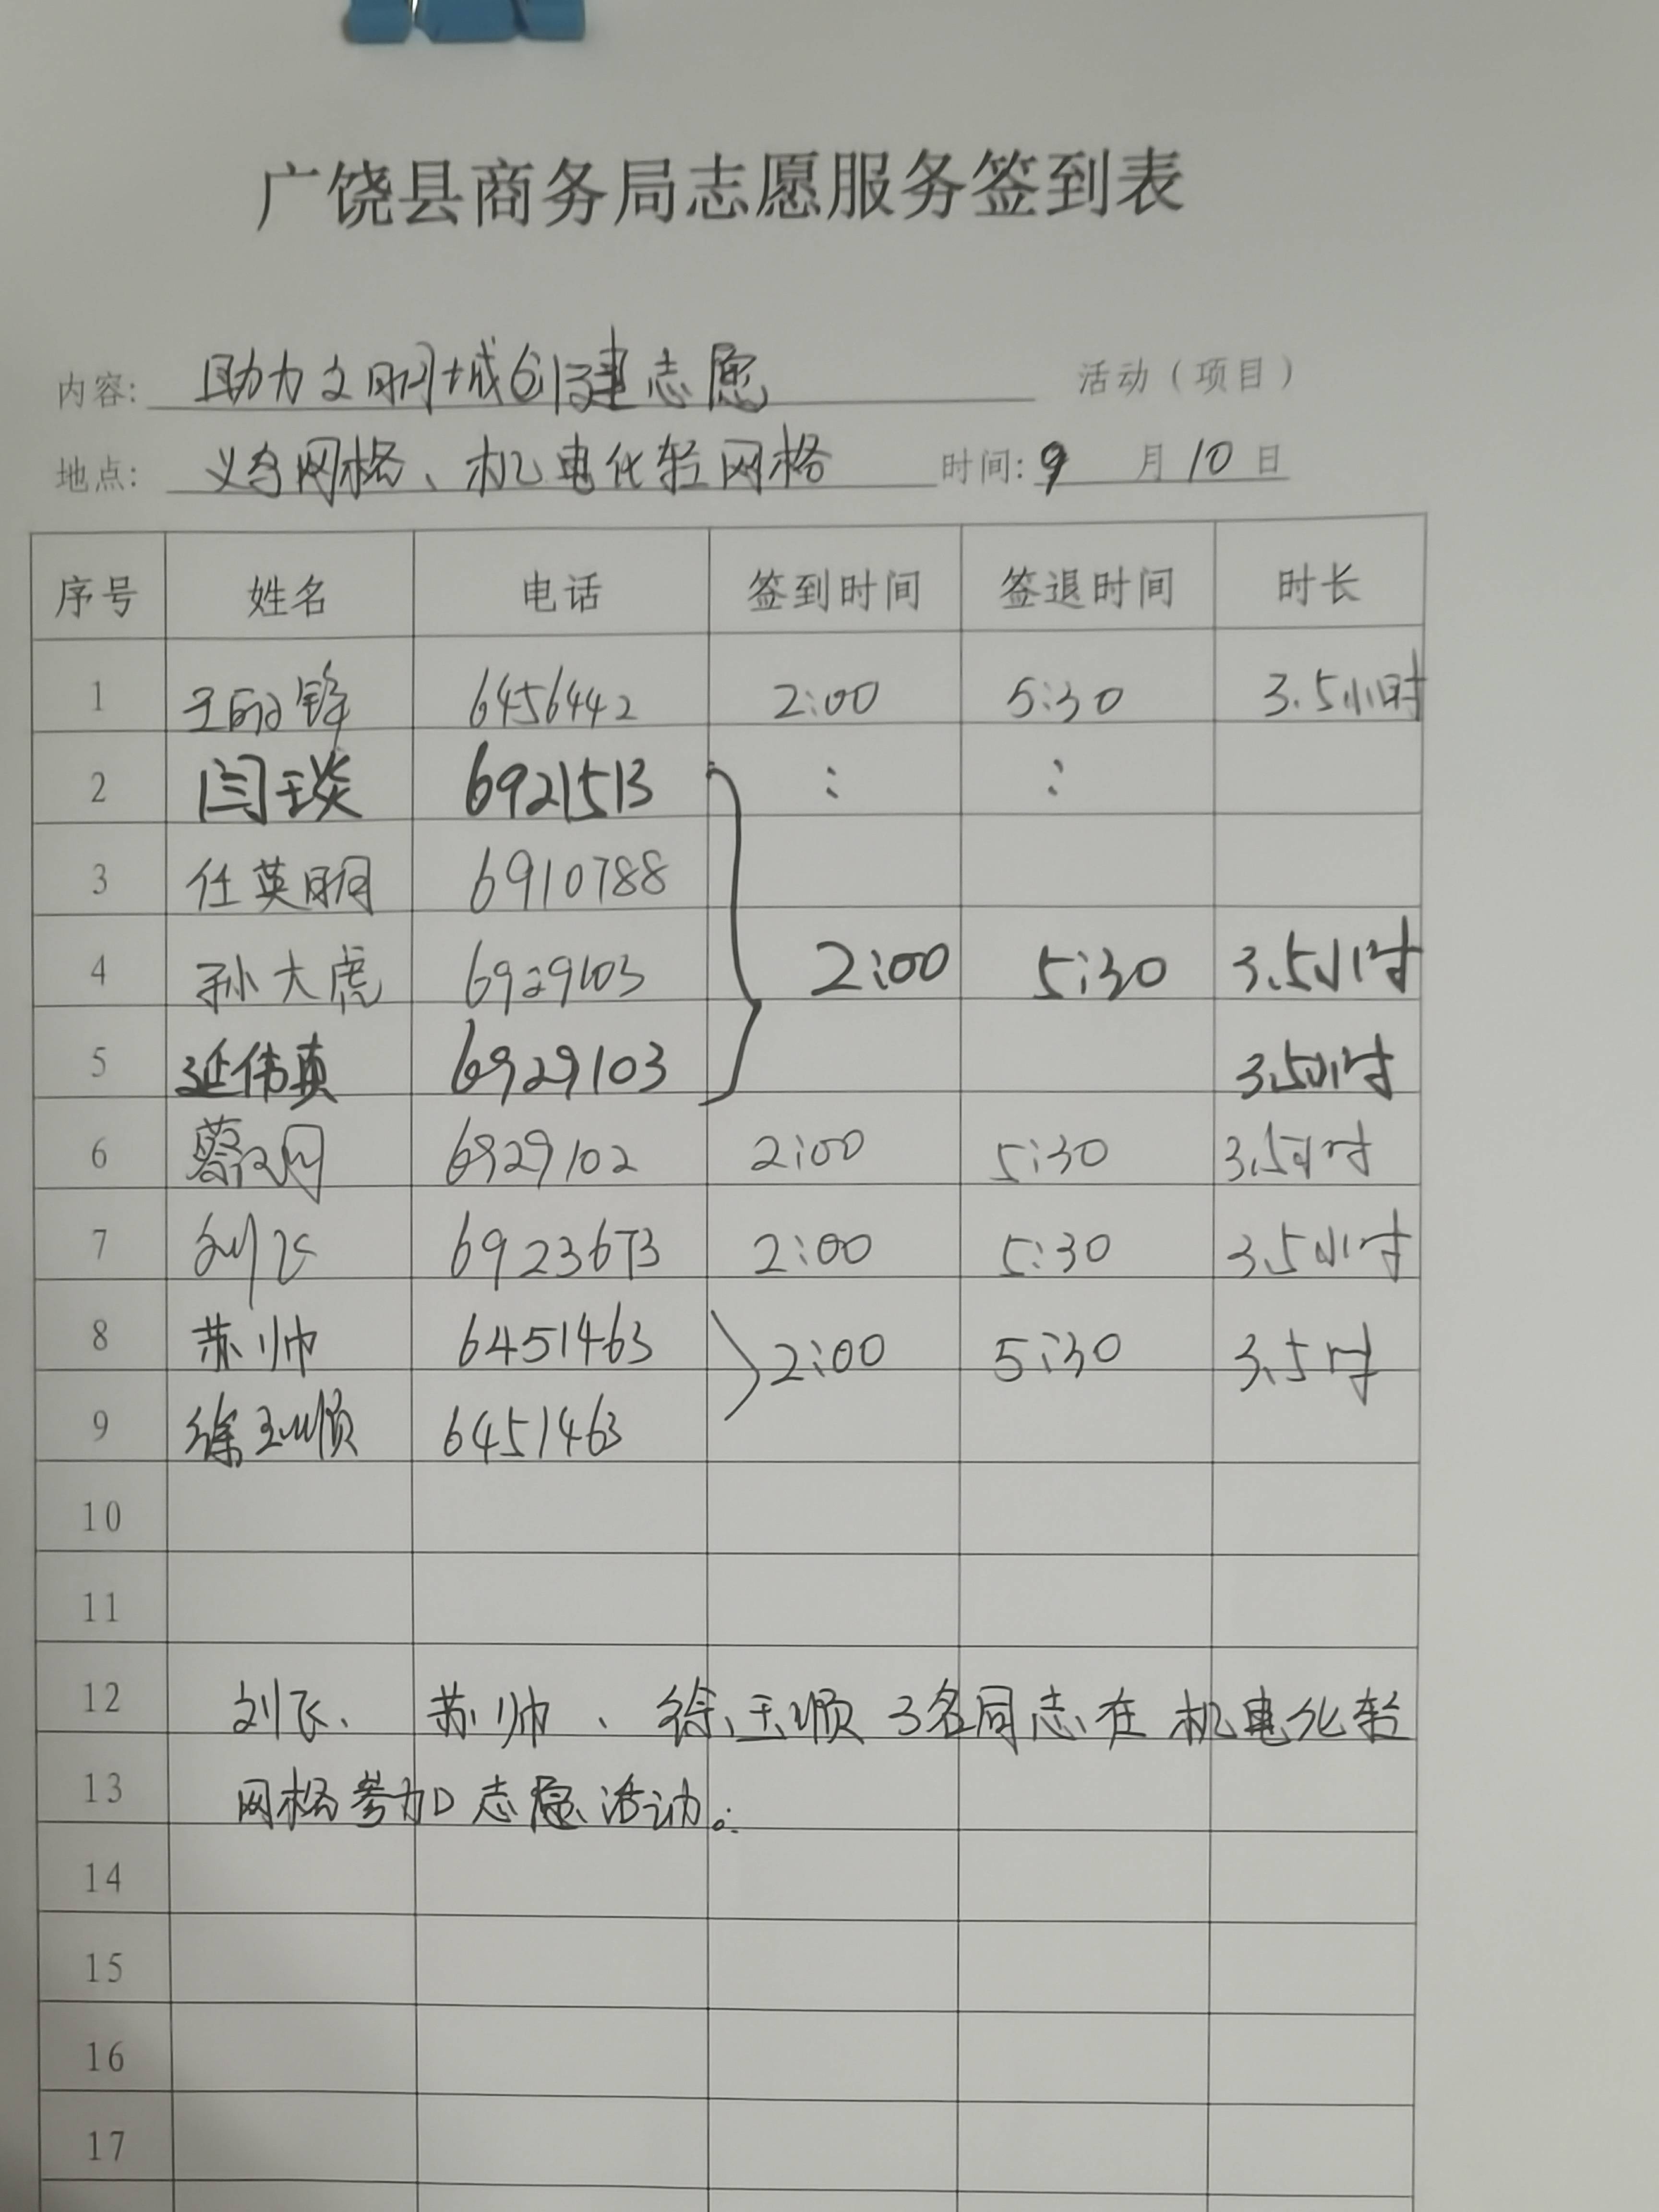 广饶县商务局志愿服务签到表
内容: 助力文明城创建志愿 活动（项目）
地点: 义乌网格、机电化轻网格 时间: 9 月 10 日
序号 姓名 电话 签到时间 签退时间 时长
1 6456442 2:00 5:30 3.5小时
2 闫琰 6921513 : :
3 任英明 6910788
4 孙大虎 6929103 2:00 5:30 3.5小时
5 延伟真 6929103 3.5小时
6 6929102 2:00 5:30 3.5小时
7 刘飞 6923673 2:00 5:30 3.5小时
8 苏帅 6451463 2:00 5:30 3.5时
9 徐玉顺 6451463
10
11
12 刘飞、苏帅、徐玉顺3名同志在机电化轻
13 网格参加志愿活动。
14
15
16
17